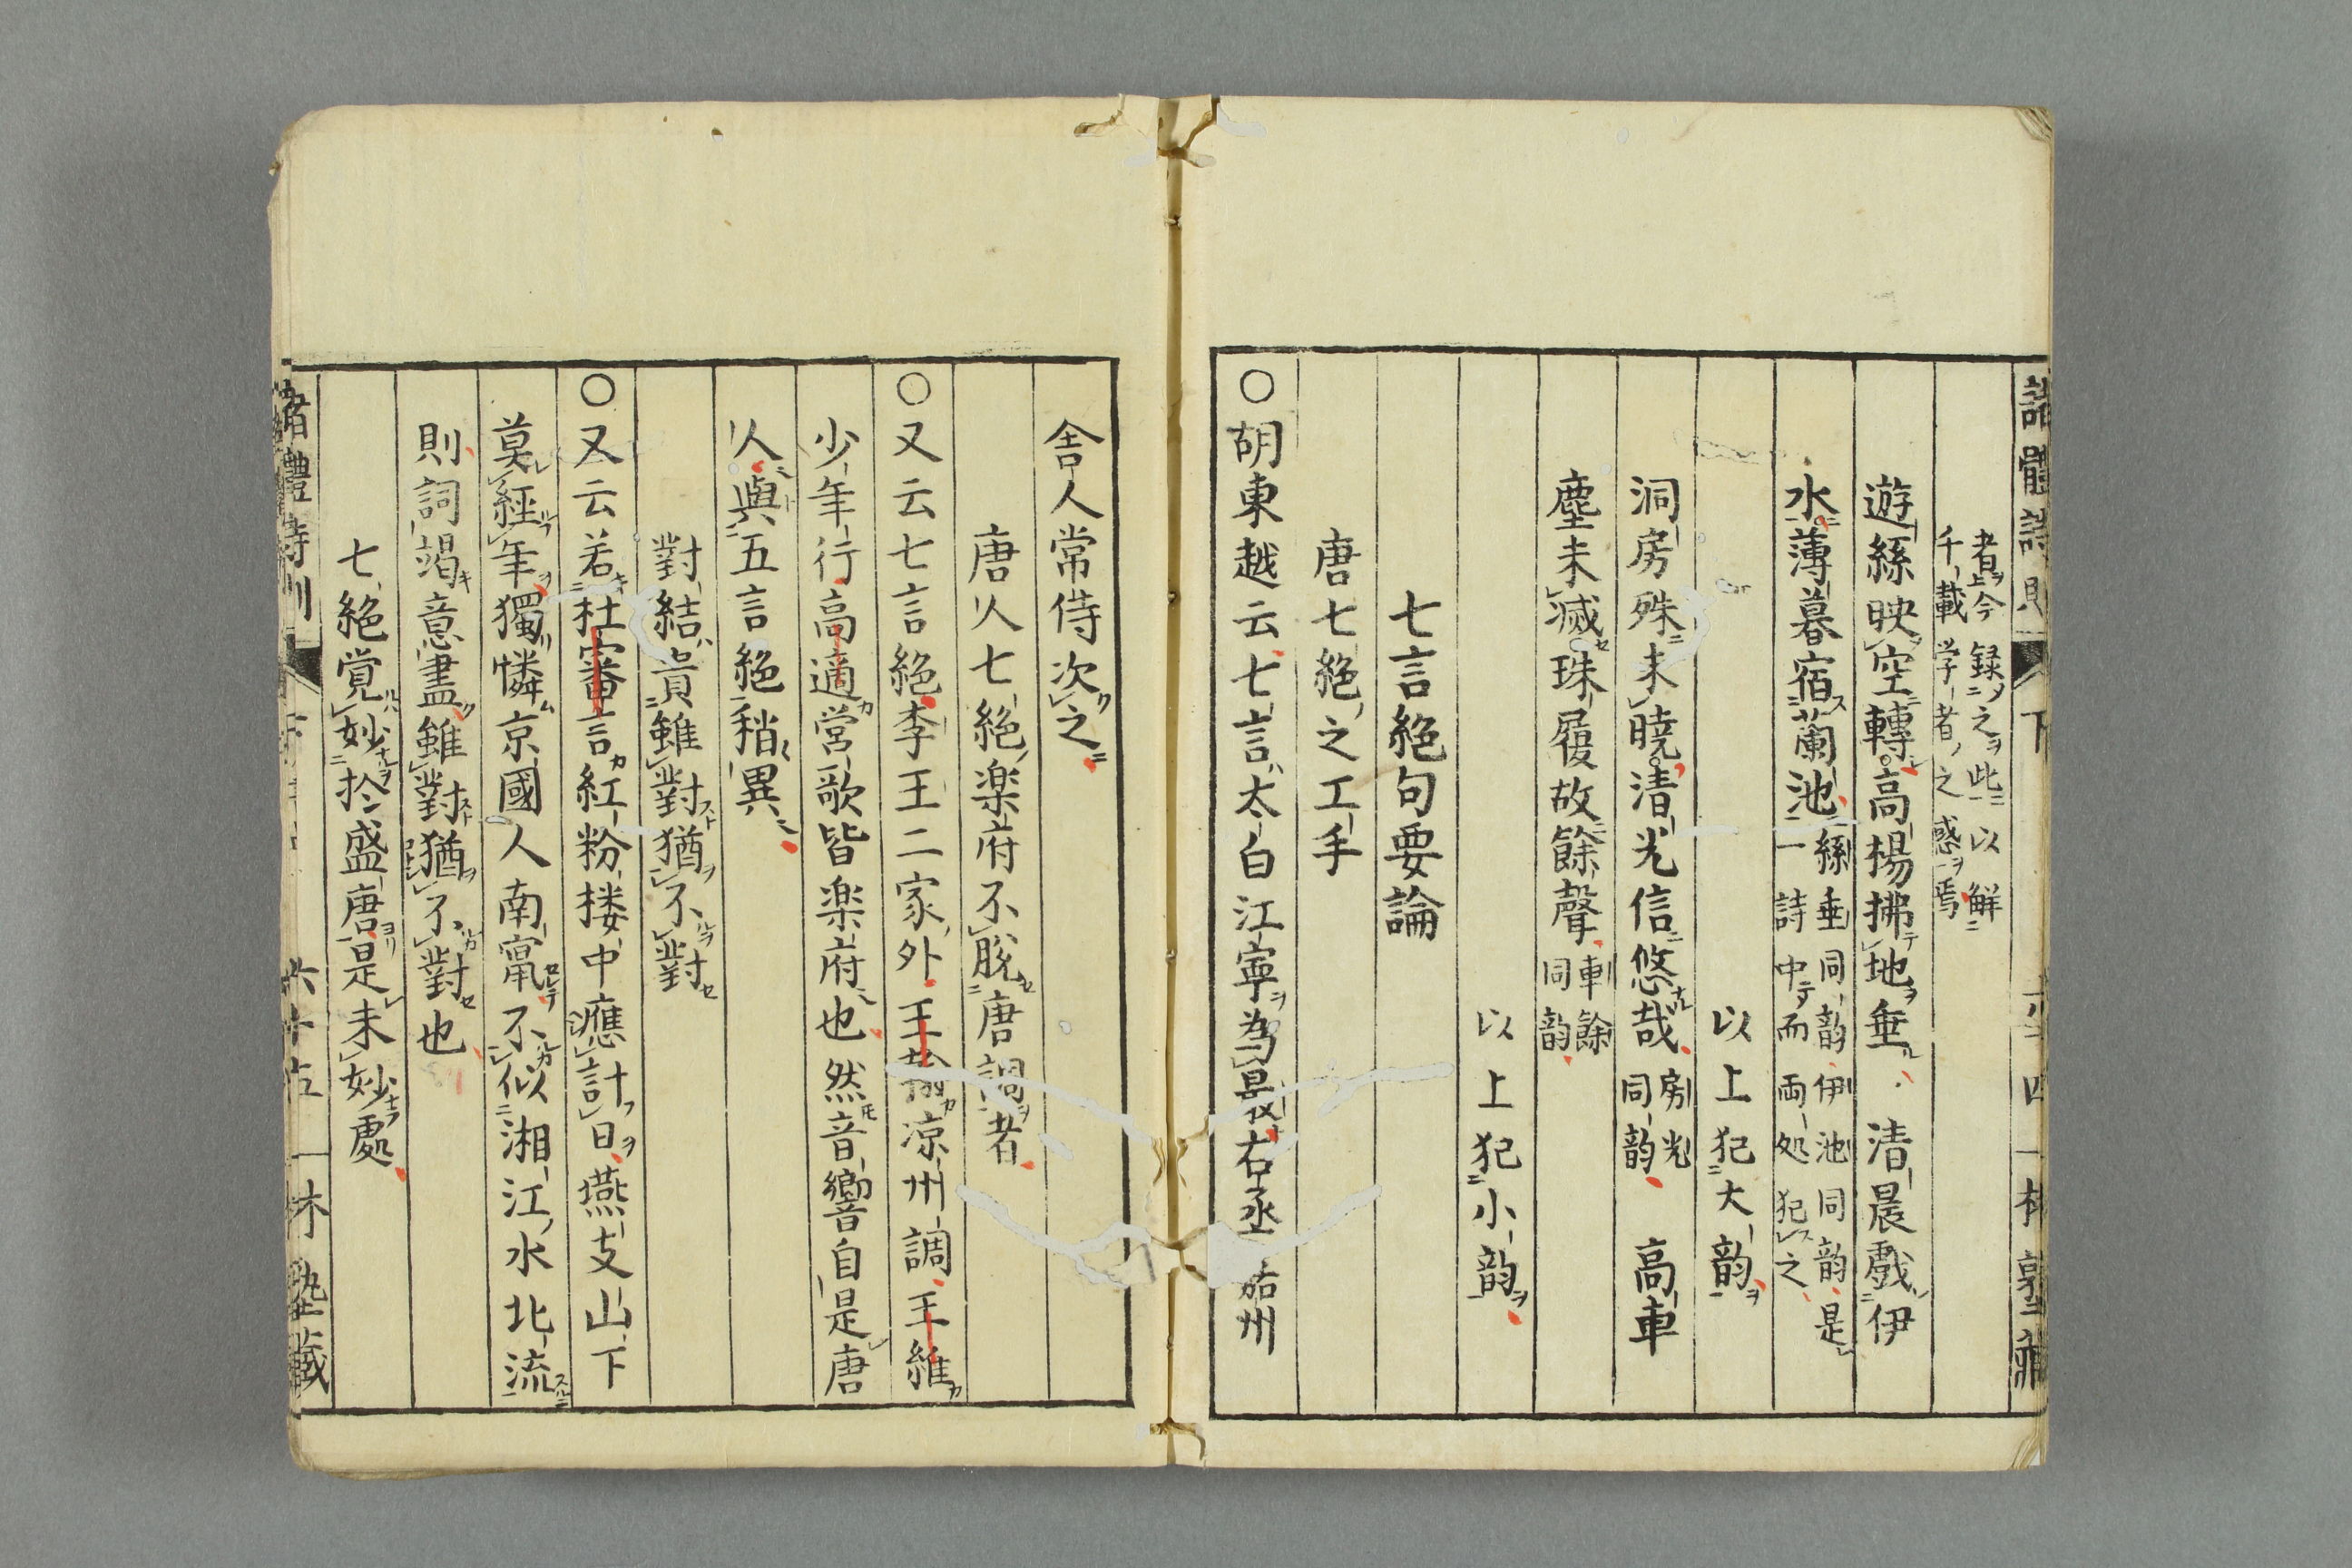 者今録之此以觧
千載学者之惑焉
遊絲映空轉高楊拂地垂　清晨戲伊
水薄暮宿蘭池絲垂同韵伊池同韵是
一詩中而両処犯之
以上犯大韵
洞房殊未曉清光信悠哉房光
同韵　高車
塵未滅珠履故餘聲車餘
同韵
以上犯小韵
七言絕句要論
唐七絕之工手
○胡東越云七言太白江寧為最右丞嘉州
舎人常侍次之
唐人七絕楽府不脫唐調者
○又云七言絕李王二家外王翰凉州調王維
少年行高適営歌皆楽府也然音響自是唐
人與五言絕稍異
對結貴雖對猶不對
○又云若杜審言紅粉楼中應計日燕支山下
莫經年獨憐京國人南竄不似湘江水北流
則詞竭意盡雖對猶不對也
七絕覚妙扵盛唐是未妙處
諸體詩則　下　六十五　一林塾藏